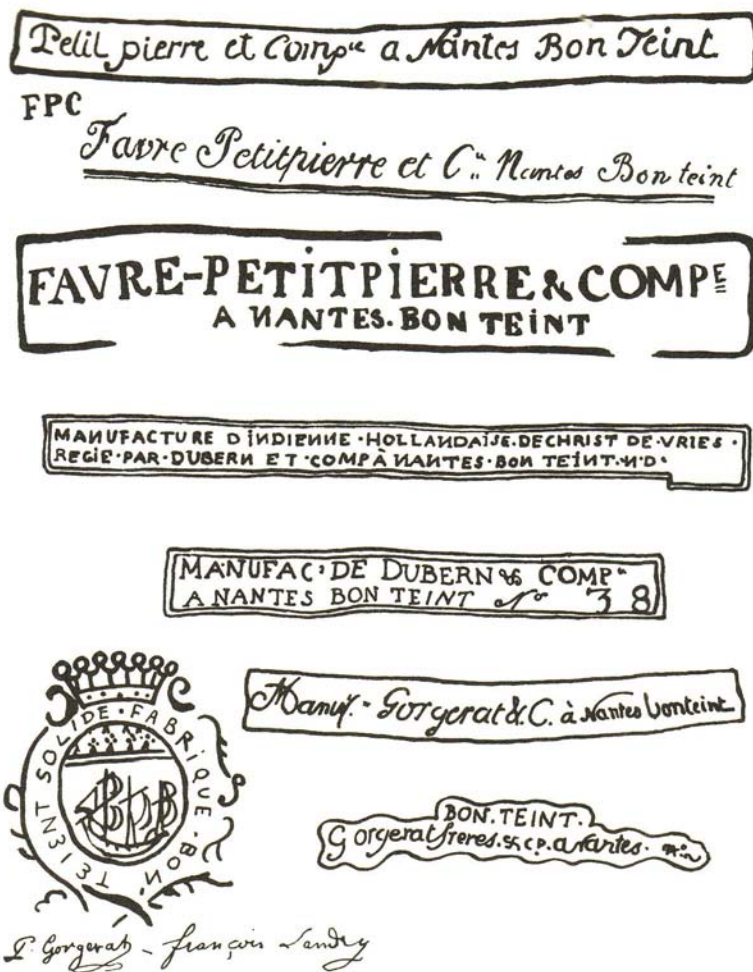 Petit pierre et Compie a Nantes Bon Teint
FPC
Favre Petitpierre et Cie Nantes Bon teint
FAVRE-PETITPIERRE & COMPE
A NANTES. BON TEINT
MANUFACTURE D INDIENNE · HOLLANDAISE. DECHRIST DE · VRIES ·
REGIE · PAR · DUBERN ET · COMP À NANTES · BON TEINT · N · D ·
MANUFAC: DE DUBERN & COMPie
A NANTES BON TEINT No 38
Manuf. - Gorgerat & C. à Nantes bonteint
SOLIDE · FABRIQUE · BON · TEIENT
BON. TEINT.
Gorgerat freres. & C P. a nantes.
P. Gorgerat - françois Landry